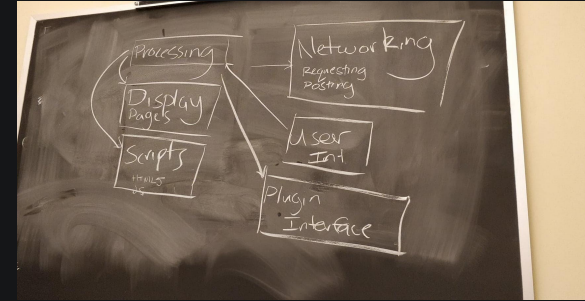 Processing
Networking
Requesting
Posting
Display
Pages
User
Int
Scripts
HTML5
JS
Plugin
Interface